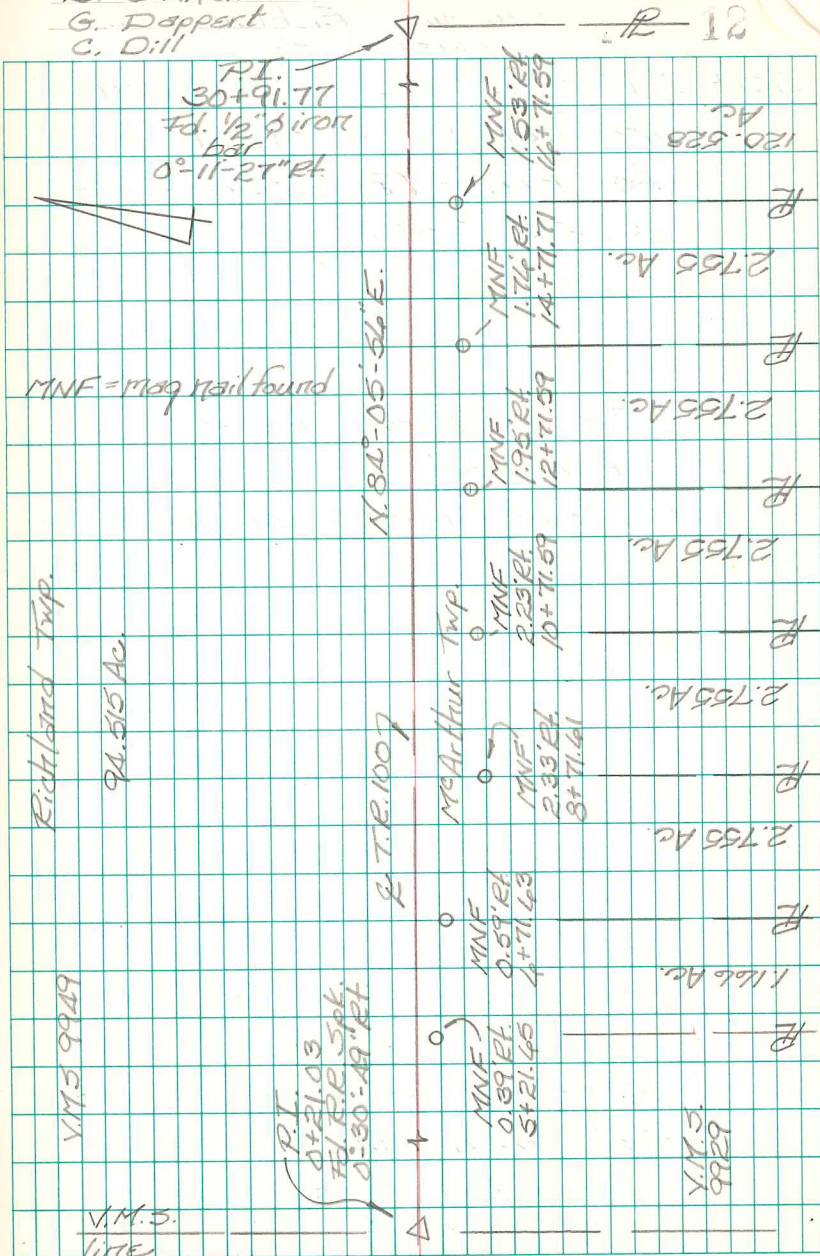 G. Deppert
C. Dill
12
P.I.
30+91.77
Fd. 1/2" φ iron
bar
MNF = mag nail found
N.84°-05'-56"E.
Richland Twp.
94.515 Ac.
℄ T.R. 1007
McArthur Twp.
V.M.S 9949
P.I.
0+21.03
Fd. R.R. Spk.
0°-30'-49" Rt.
V.M.S.
line
MNF
1.53' Rt.
16+71.59
MNF
1.76' Rt.
14+71.71
MNF
1.95' Rt.
12+71.59
MNF
2.23' Rt.
10+71.59
MNF
2.33' Rt.
8+71.61
MNF
0.59' Rt.
6+71.63
MNF
0.39' Rt.
5+21.65
PL
120.528
Ac.
PL
2.755 Ac.
PL
2.755 Ac.
PL
2.755 Ac.
PL
2.755 Ac.
PL
2.755 Ac.
PL
1.166 Ac.
PL
V.M.S.
9929